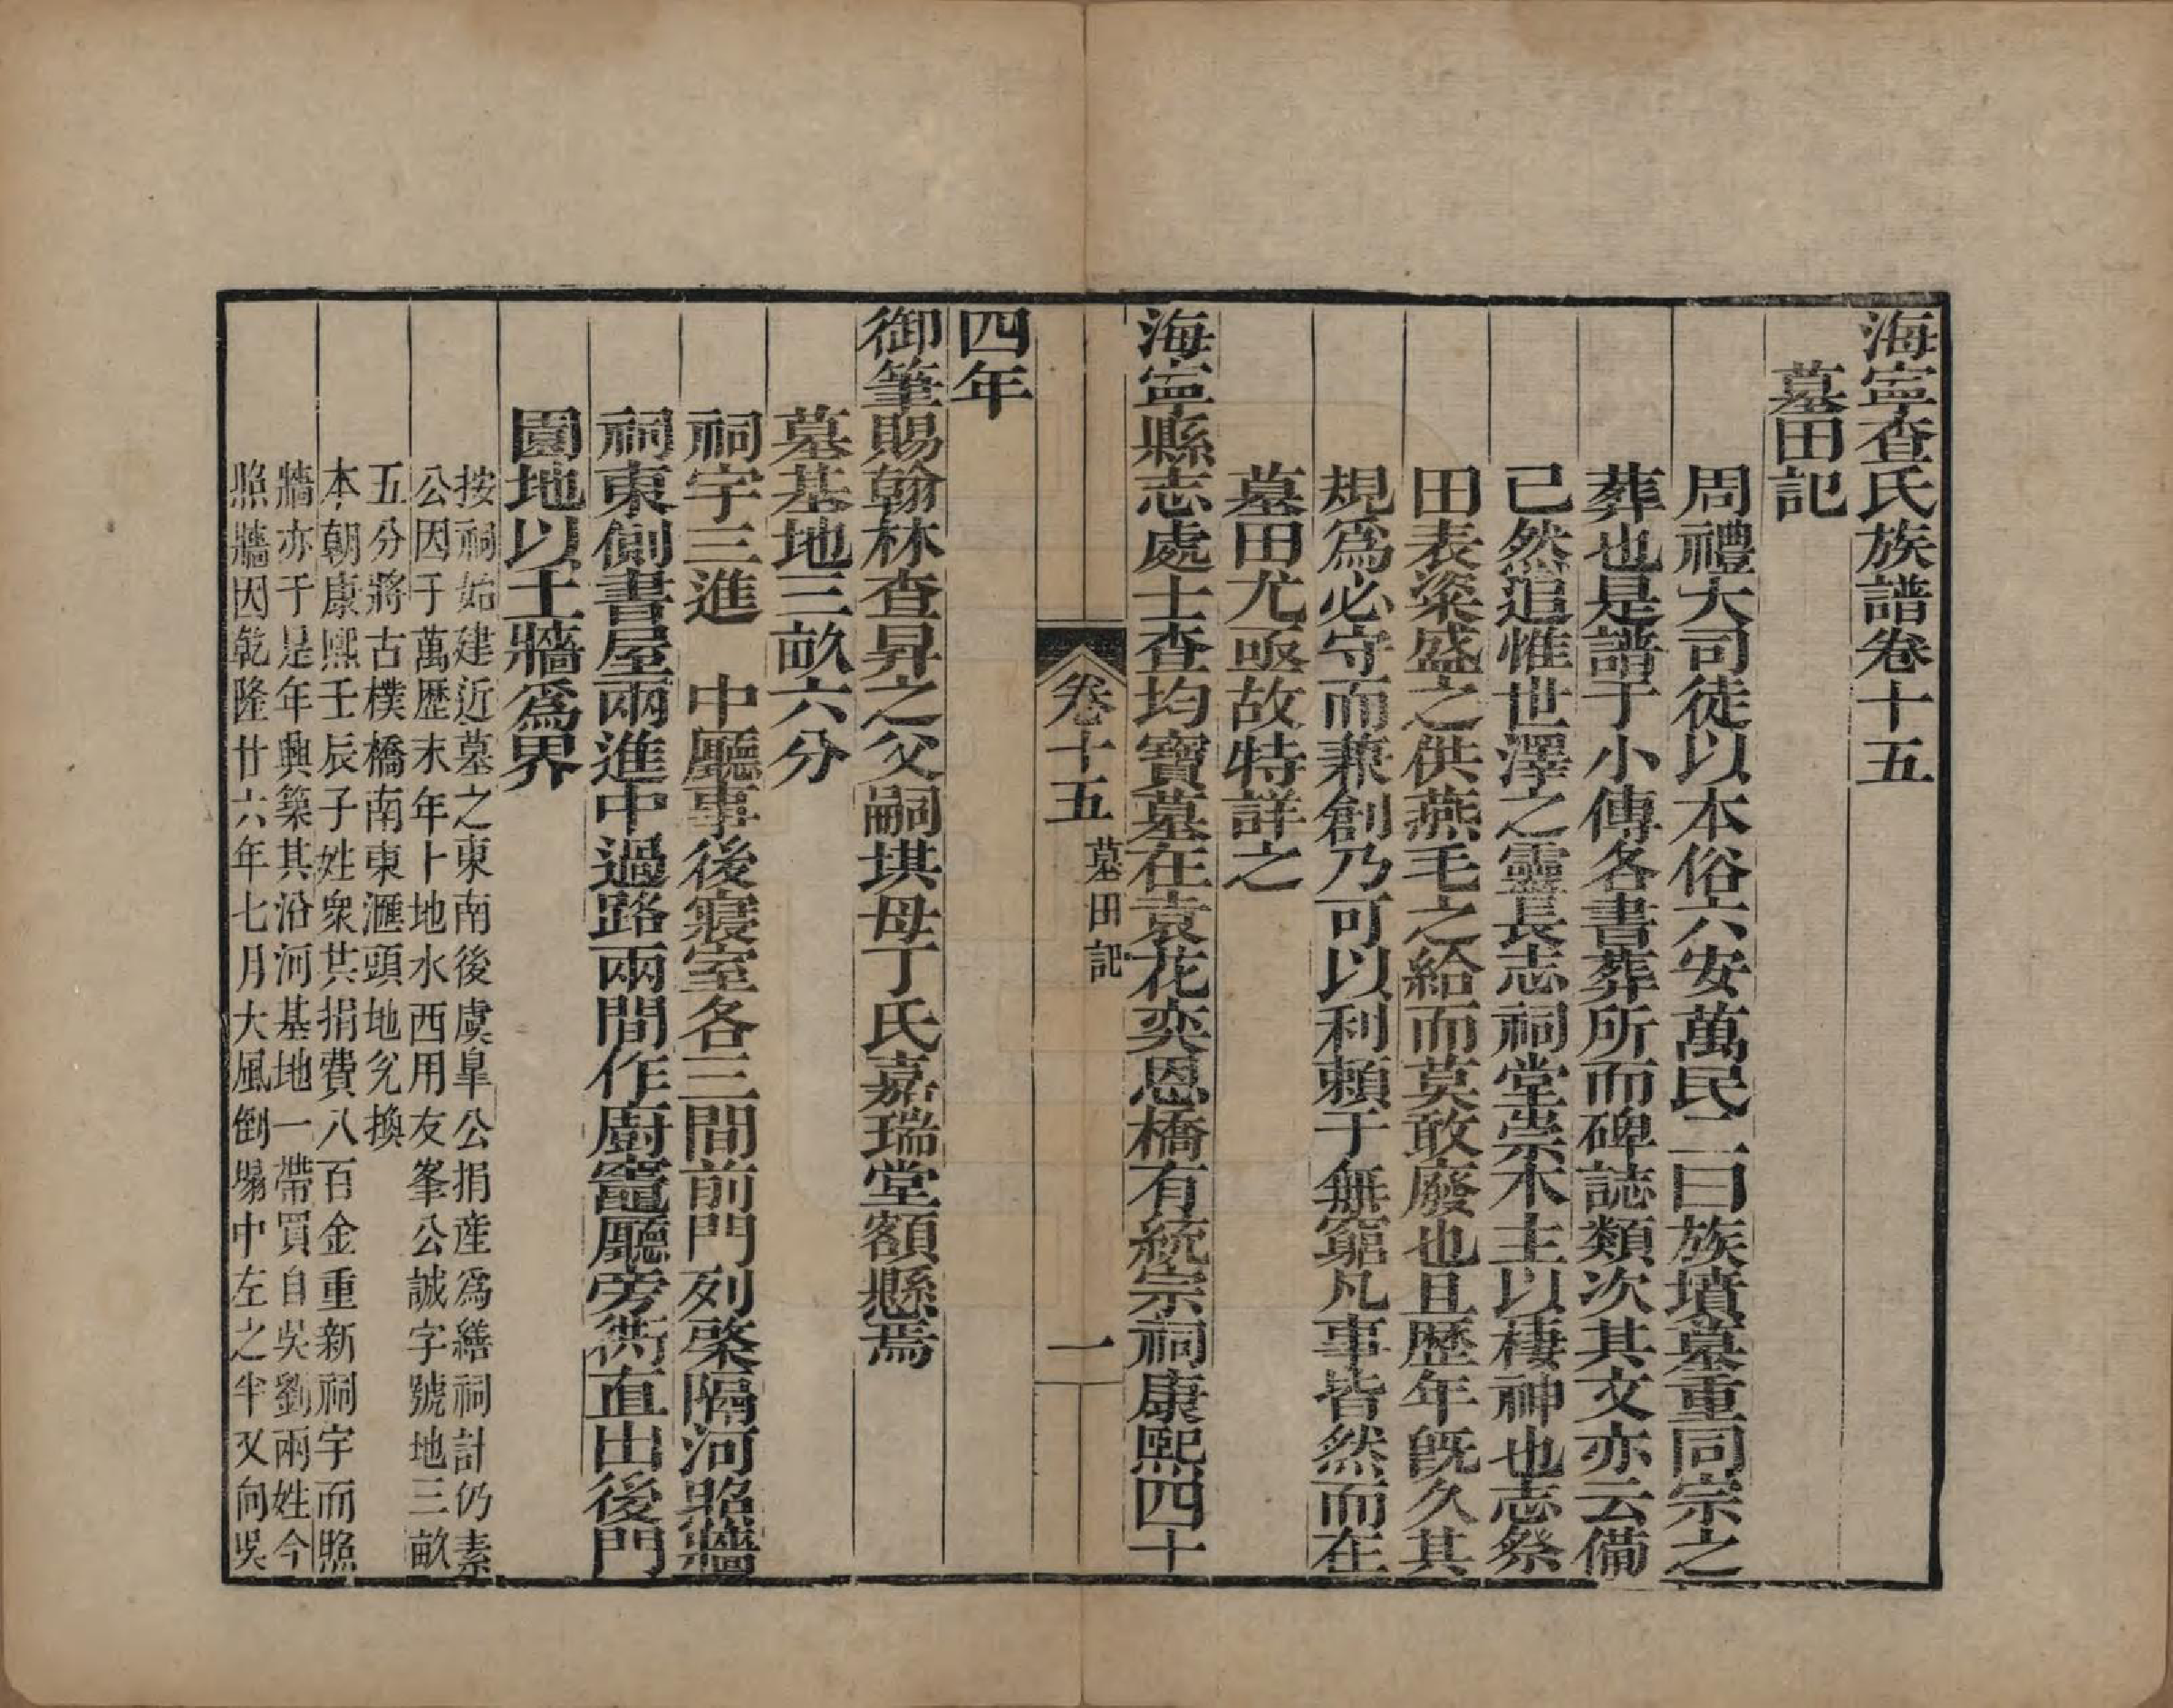 海寧查氏族譜卷十五
墓田記
周禮大司徒以本俗六安萬民二曰族墳墓重同宗之
葬也是譜于小傳各書葬所而碑誌類次其文亦云備
已然追惟世澤之靈長志祠堂崇木主以棲神也志祭
田表粢盛之供燕毛之給而莫敢廢也且歷年旣久其
規爲必守而兼創乃可以利賴于無窮凡事皆然而在
墓田尤亟故特詳之
海寧縣志處士查均寶墓在袁花奕恩橋有統宗祠康熙四十
卷十五
墓田記
一
四年
御筆賜翰林查昇之父嗣琪母丁氏嘉瑞堂額懸焉
墓基地三畝六分
祠宇三進 中廳事後寢室各三間前門列棨隔河照牆
祠東側書屋兩進中過路兩間作廚竈廳旁衖直出後門
園地以土牆爲界
按祠始建近墓之東南後虞臯公捐産爲繕祠計仍素
公因于萬歷末年卜地水西用友峯公誠字號地三畝
五分將古樸橋南東滙頭地兌換
本朝康熙壬辰子姓衆共捐費八百金重新祠宇而照
牆亦于是年興築其沿河基地一帶買自吳劉兩姓今
照牆因乾隆廿六年七月大風倒塌中左之半又向吳